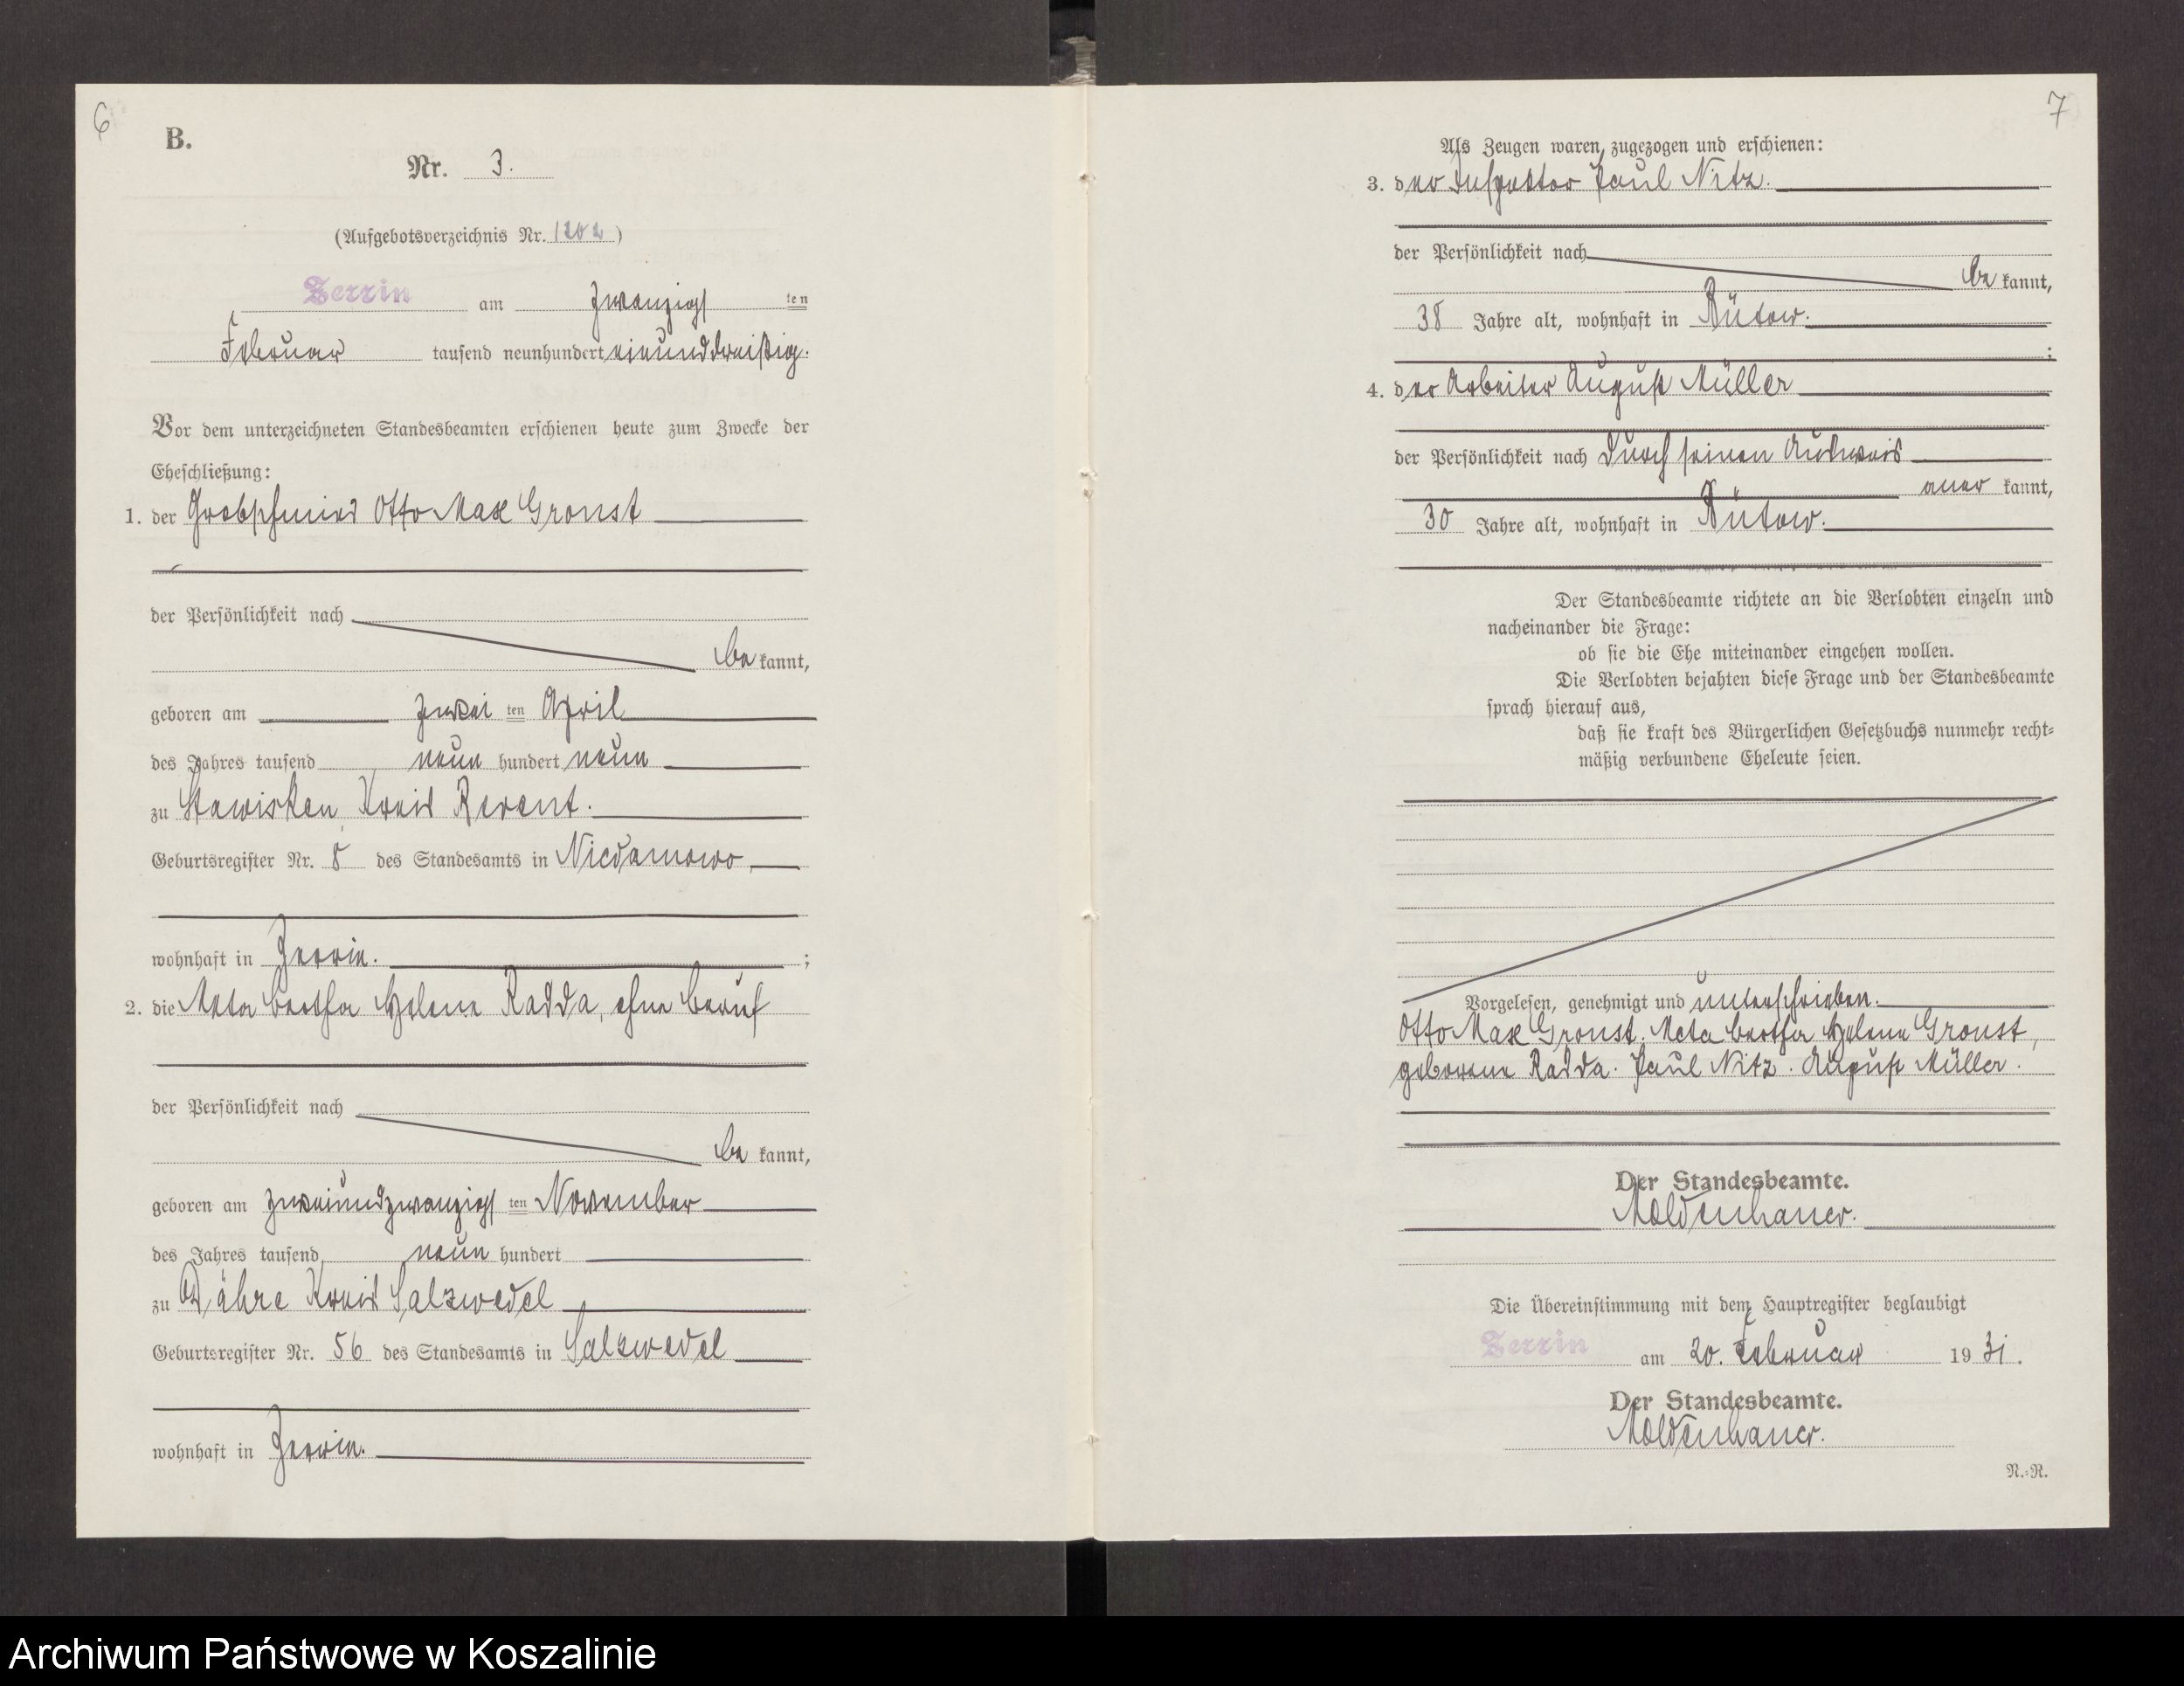 6
B.
Nr. 3.
(Aufgebotsverzeichnis Nr.)
Zerrin am zwanzigsten
Februar tausend neunhundert einunddreißig.
Vor dem unterzeichneten Standesbeamten erschienen heute zum Zwecke der
Eheschließung:
1. der Grobschmied Otto Max Gronst
der Persönlichkeit nach
be kannt,
geboren am zwei ten April
des Jahres tausend neun hundert neun
zu Stawisken, Kreis Berent.
Geburtsregister Nr. 8 des Standesamts in Niedamowo
wohnhaft in Zerrin. ;
2. die Meta Bertha Helene Radda, ohne Beruf
der Persönlichkeit nach
be kannt,
geboren am zweiundzwanzigs ten November
des Jahres tausend neun hundert
zu Dähre Kreis Salzwedel
Geburtsregister Nr. 56 des Standesamts in Salzwedel
wohnhaft in Zerrin.
7
Als Zeugen waren zugezogen und erschienen:
3. der Inspektor Paul Nitz.
der Persönlichkeit nach
be kannt,
38 Jahre alt, wohnhaft in Bütow.
;
4. der Arbeiter August Müller
der Persönlichkeit nach durch seinen Ausweis
aner kannt,
30 Jahre alt, wohnhaft in Bütow.
Der Standesbeamte richtete an die Verlobten einzeln und
nacheinander die Frage:
ob sie die Ehe miteinander eingehen wollen.
Die Verlobten bejahten diese Frage und der Standesbeamte
sprach hierauf aus,
daß sie kraft des Bürgerlichen Gesetzbuchs nunmehr recht=
mäßig verbundene Eheleute seien.
Vorgelesen, genehmigt und unterschrieben.
Otto Max Gronst. Meta Bertha Helene Gronst,
geborene Radda. Paul Nitz. August Müller.
Der Standesbeamte.
Moldenhauer.
Die Übereinstimmung mit dem Hauptregister beglaubigt
Zerrin am 20. Februar 1931.
Der Standesbeamte.
Moldenhauer.
N.=R.
Archiwum Państwowe w Koszalinie